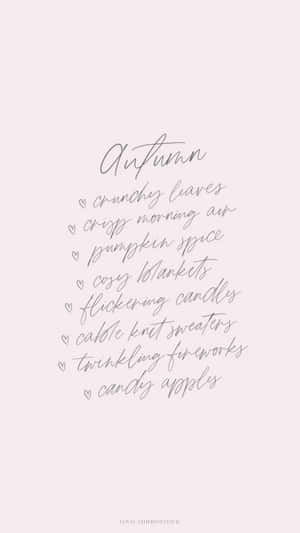 Autumn
crunchy leaves
crisp morning air
pumpkin spice
cosy blankets
flickering candles
cable knit sweaters
twinkling fireworks
candy apples